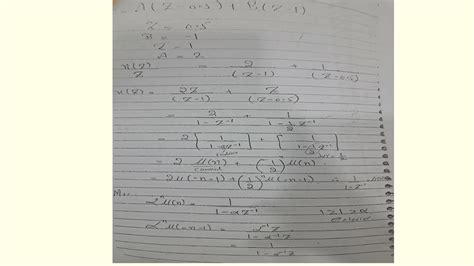 = A(Z-0.5) + B(Z-1)
Z = 0.5
B = -1
Z = 1
A = 2
x(Z)/Z = 2/(Z-1) + 1/(Z-0.5)
x(Z) = 2Z/(Z-1) + Z/(Z-0.5)
= 2/(1-Z⁻¹) + 1/(1-1/2 Z⁻¹)
= 2[1/(1-Z⁻¹)] + [1/(1-1/2 Z⁻¹)]
= 2 u(n) + (1/2)ⁿ u(n)
= 2u(-n-1) + (1/2)ⁿ u(-n-1)
αⁿu(n) = 1/(1-αZ⁻¹) |Z|>α
αⁿu(-n-1) = α⁻¹Z/(1-α⁻¹Z)
= 1/(1-α⁻¹Z)